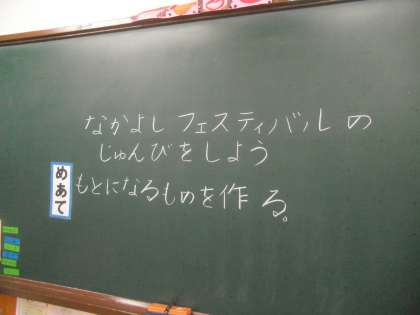 なかよしフェスティバルの
じゅんびをしよう
めあて
もとになるものを作る。